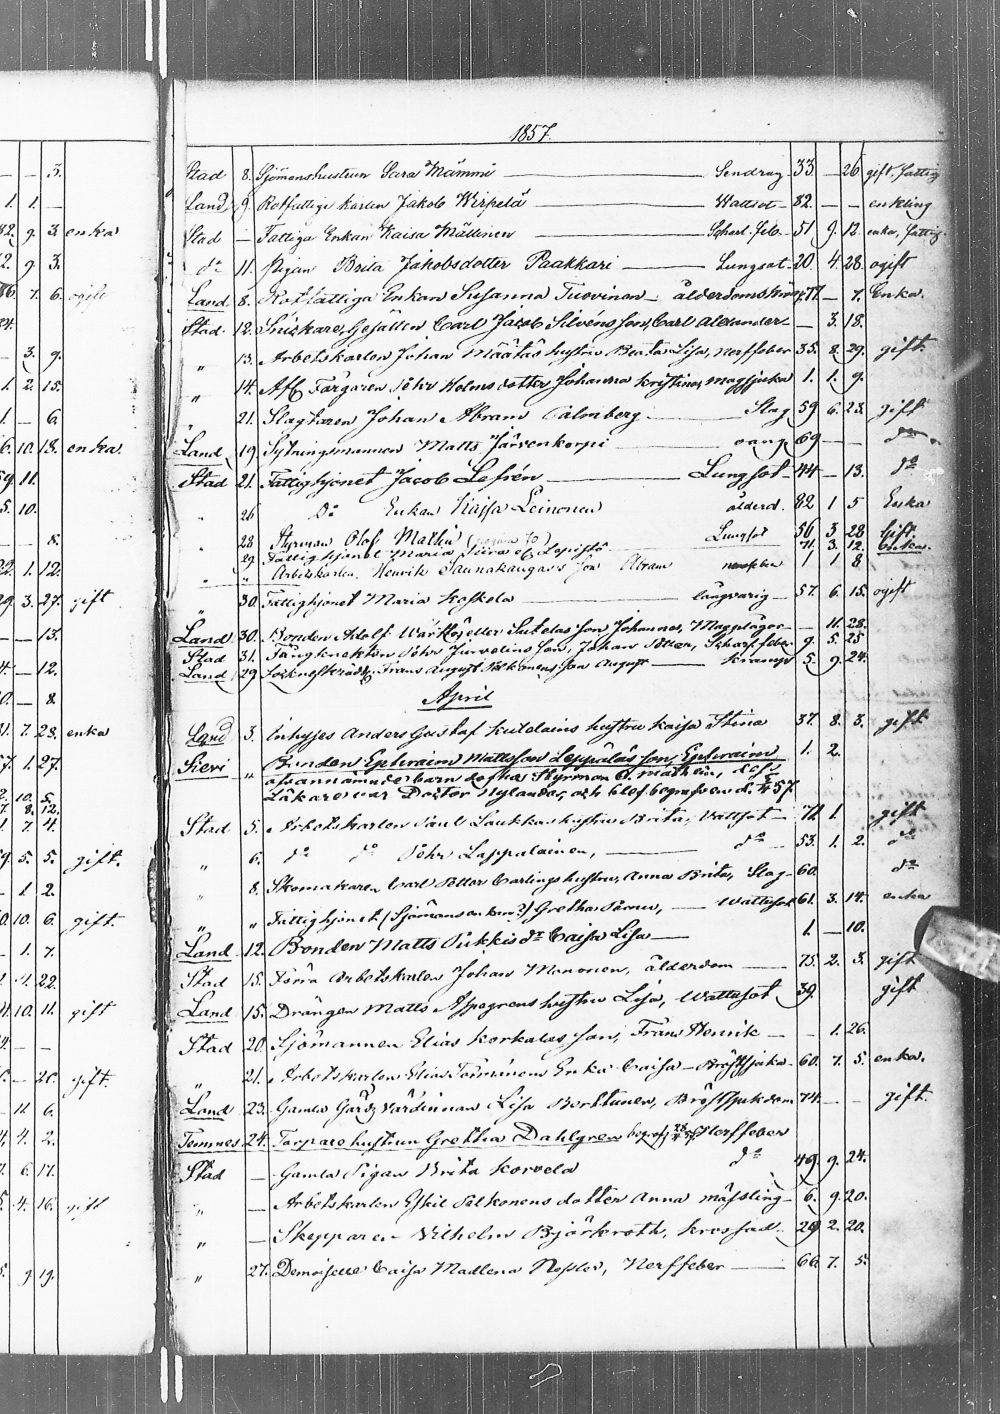 1857.
3. Stad 8. Sjömanshustrun Sara Mämmi Lendrag 33 — 26 gift. fattig
1. 1. — Land 9. Rotfattige karlen Jakob Wirpelä Wattsot 82. — — enkling
9. 3 enka Stad — Fattiga Enkan Kaisa Mällinen Scharl. feb. 51 9. 12. enka, fattig.
2. 9. 3. do 11. Pigan Brita Jakobsdotter Paakkari Lungsot 20. 4. 28. ogift
7. 6. ogift Land 8. Rotfattiga Enkan Susanna Tuovinen ålderdoms 77 — 7. Enka.
Stad 12. Gesällen Carl Jacob Silvéns son, Carl Alexander — 3. 18.
3. 9. " 13. Arbetskarlen Johan Määtäs hustru Beata Lisa, nerffeber 35. 8. 29. gift.
1. 2. 15. " 14. Afl. Färgaren Pehr Holms dotter Johanna Kristina, magsjuka 1. 1. 9.
1. — 6. " 21. Slagtaren Johan Abram Palmberg Slag 59 6. 23. gift
6. 10. 18. enka. Land 19. Sytningsmannen Matts Järvenkorpi 69 — — do
9. 11. Stad 21. Fattighjonet Jacob Lefrén Lungsot 44 — 13. do
5. 10. " 26 do Enkan Kajsa Leinonen ålderd. 82 1 5 Enka
— 8. " 28 Styrman Olof Mathen Lungsot 56 3 28 Gift
29. Fattighjonet Maria 71. 3. 12. Enka.
22. 1. 12. " " Arbetskarlen Henrik Saunakangas's son Abram 1 1 8
29. 3. 27. gift " 30. Fattighjonet Maria Koskela långvarig 57. 6. 15. ogift
— — 13. Land 30. Bonden Adolf eller Sutelas son Johannes, Magplågor — 11. 28.
Stad 31. Fångknekten Pehr Jurvelins son, Johan Petter, Scharl. feber 9. 5. 25
4. — 12. Land 29. Frans August son August kramp 5. 9. 24.
0. — 8. April
7. 23. enka Land 3. Inhyses Anders Gustaf Kuldains hustru Kaisa Stina 37. 8. 3. gift
7. 1. 27. Sievi " Bonden Ephraim Mattsson Leppälas son, Ephraim 1. 2.
ofvannämnde barn Styrman O. Mathén,
Läkare var Doctor Nylander, och blef begrafven d. 4/5 57
7. 4. Stad 5. Arbetskarlen Paul Laukkas hustru Brita, Vattsot 72 1. gift
5. 5. gift. " 6. do do Pehr Lappalainen, do 53. 1. 2. do
1 2. " 8. Skomakaren Carl Petter Carlings hustru, Anna Brita, Slag 60. do
10. 6. gift. " " Fattighjonet (Sjömansenkan?) Gretha Wattusot 61. 3. 14. enka
1. 7. Land 12. Bonden Matts Pukkis dr Caisa Lisa 1. — 10.
4. 22. Stad 15. Förra Arbetskarlen Johan Mononen, ålderdom 75. 2. 3. gift
10. 11. gift Land 15. Drängen Matts Aspegrens hustru Lisa, Wattusot 39. gift
Stad 20. Sjömannen Elias Korkalas son, Frans Henrik — 1. 26.
— 20. gift. " 21. Arbetskarlen Elias Enka Caisa Bröstsjuka 60. 7. 5. enka.
11. 6. Land 23. Gamla Gårdsvärdinnan Lisa Berttunen, Bröstsjukdom 74. — — gift.
4. 2. Temmes 24. Torpare hustrun Gretha Dahlgren Nerffeber
6. 17. Stad — Gamla Pigan Brita Korvela do 49. 9. 24.
4. 16. gift " — Arbetskarlen Eskil Pelkonens dotter Anna mässling 6. 9. 20.
" — Skepparen Vilhelm Björkroth, krossad 29 2. 20.
9 19. " 27. Demoiselle Caisa Madlena Nerffeber 66. 7. 5.